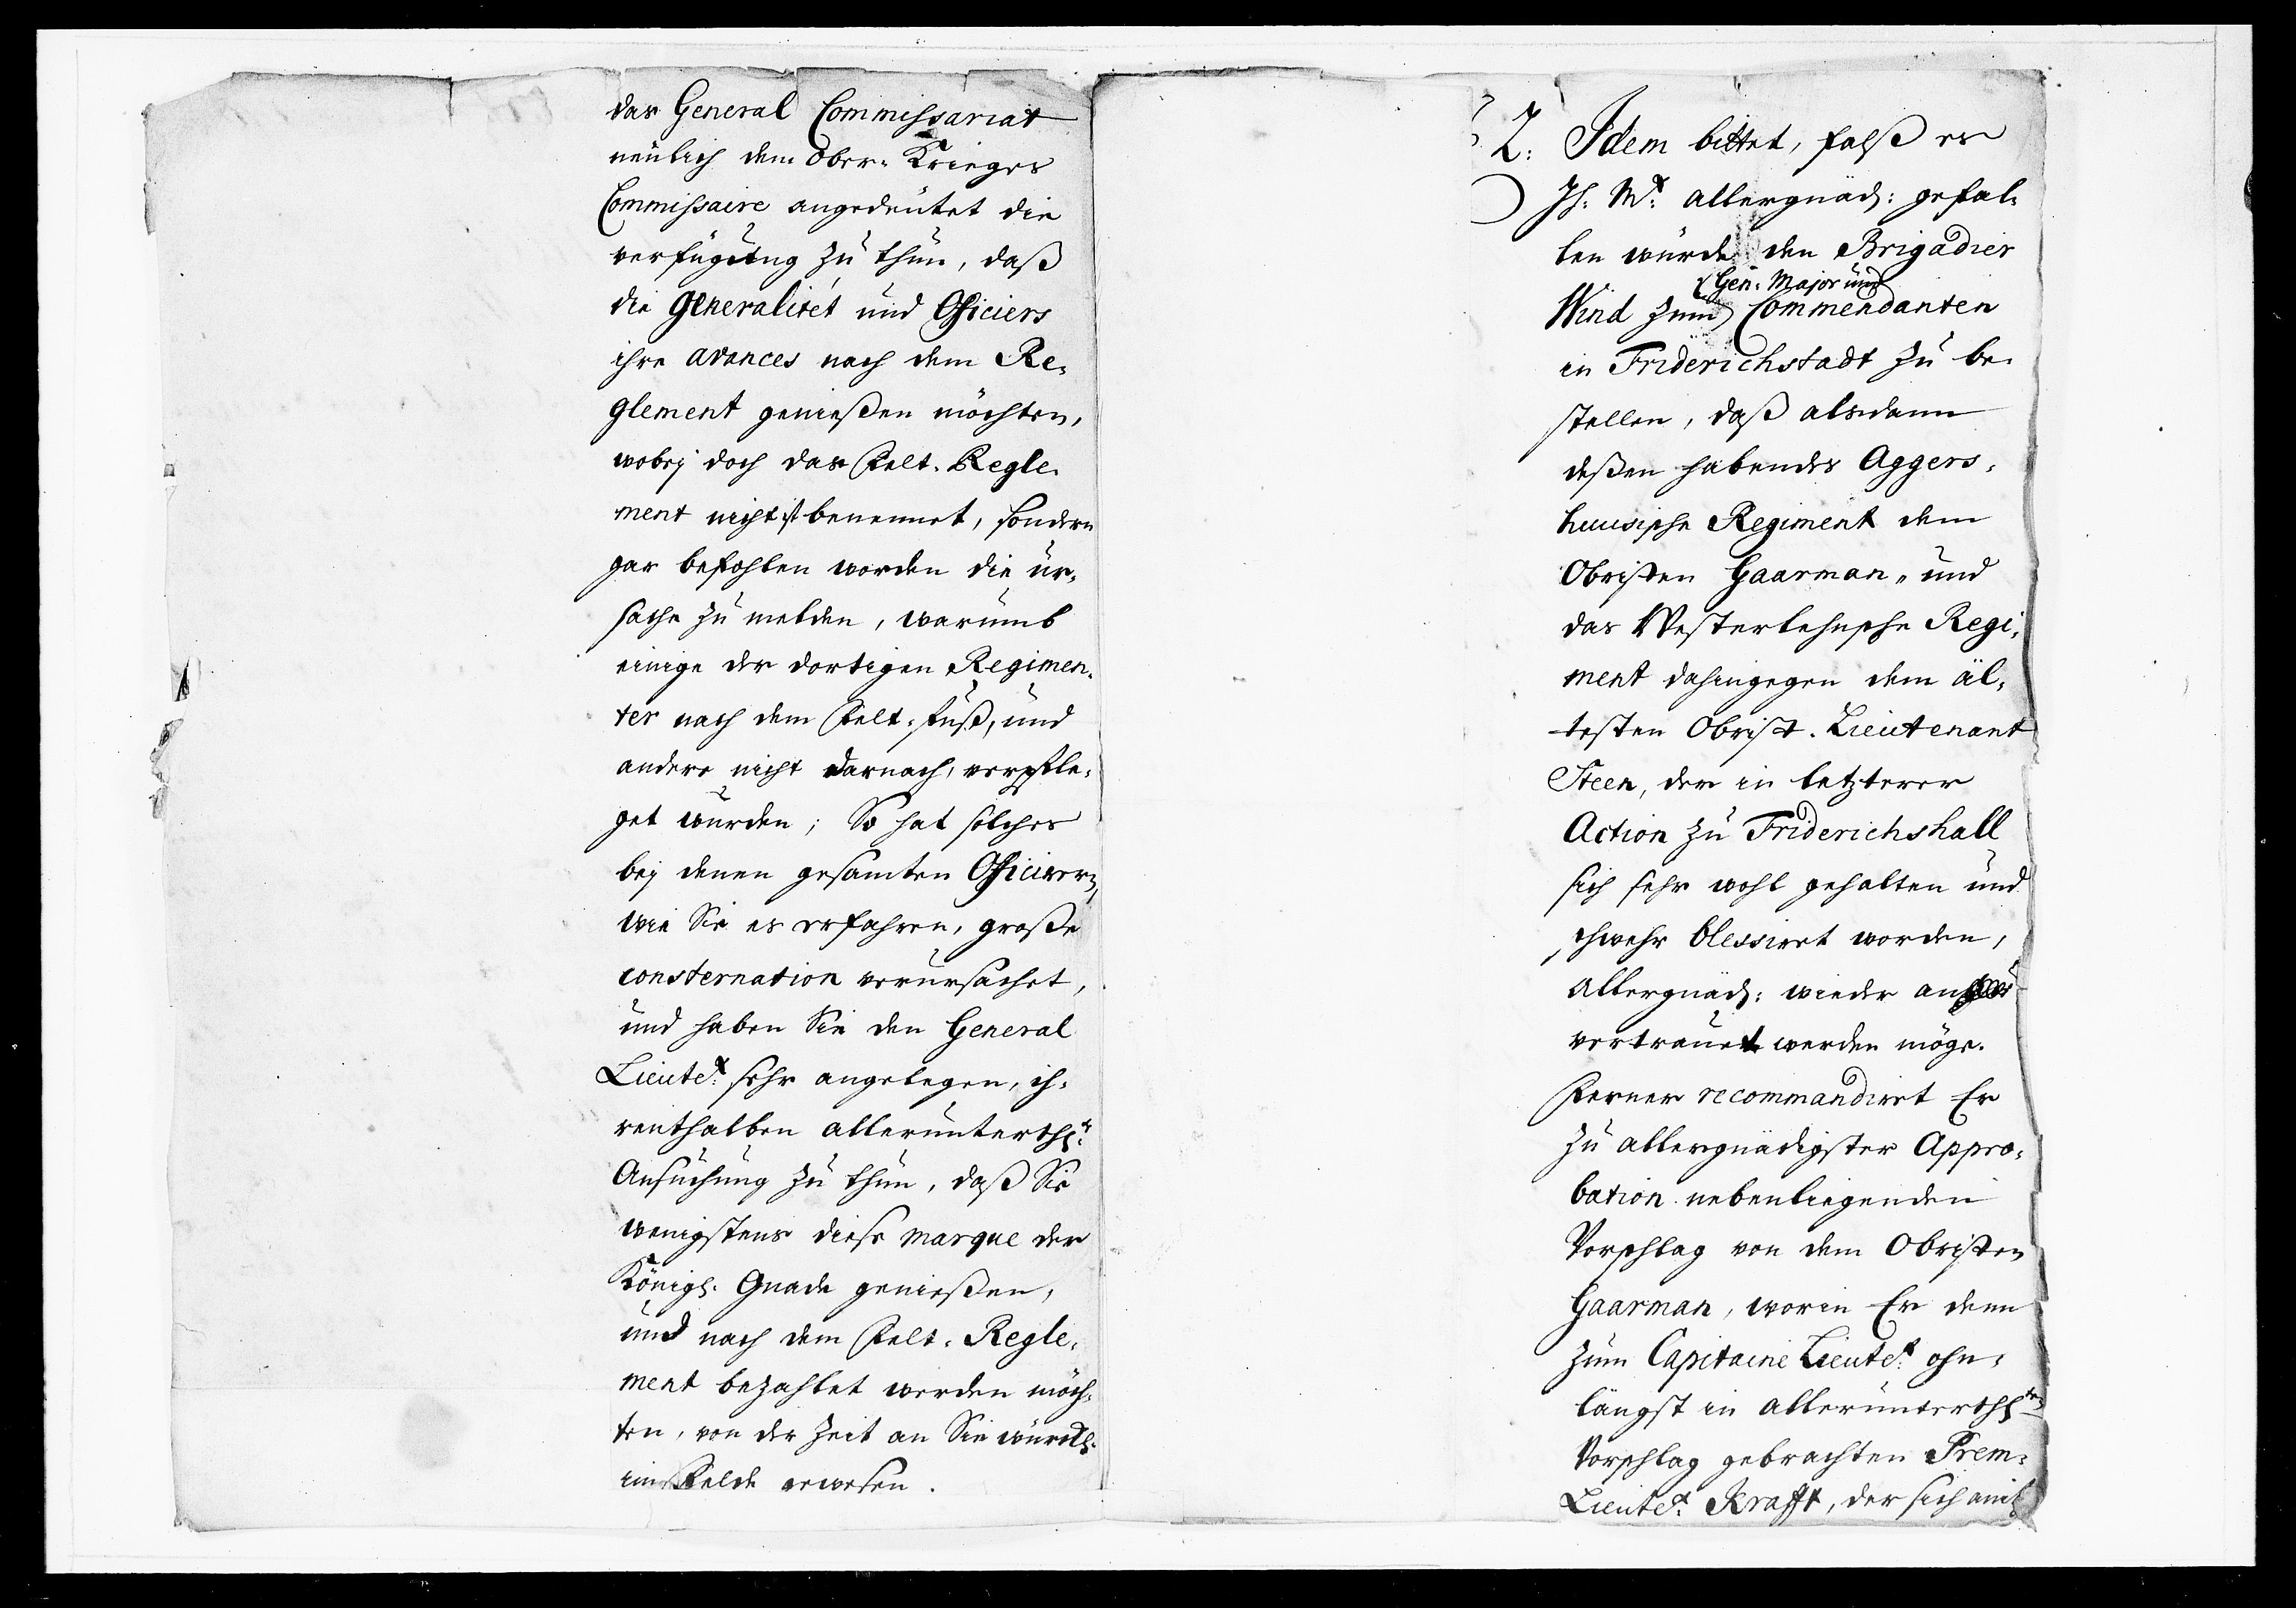 das General Commissariat
neulich dem Ober-Krieges
Commissaire angedeutet die
verfügung zu thun, daß
die Generalitét und Officiers
ihre avances nach dem Re-
glement genießen möchten,
wobej doch das Felt-Regle-
ment nicht ist benennet, sondern
gar befohlen worden die ur-
sache zu melden, warumb
einige der dortigen Regimen-
ter nach dem Felt-fuß, und
andere nicht darnach, verpfle-
get würden; So hat solches
bej denen gesamten Officirern,
wie Sie es erfahren, große
consternation verursachet,
und haben Sie den General
Lieutet: sehr angelegen, ih-
renthalben allerunterthst:
Ansuchung zu thun, daß Sie
wenigstens diese marque der
Königl. Gnade genießen,
und nach dem Felt-Regle-
ment bezahlet werden möch-
ten, von der Zeit an Sie würckl.
im Felde gewesen.
2. Idem bittet, falß es
Ih: Mt: allergnäd: gefal-
len würde den Brigadier
Gen: Major und
Wind zum Commendanten
in Friderichstadt zu be-
stellen, daß alsdann
deßen habendes Aggers-
huusische Regiment dem
Obristen Gaarman, und
das Westerlehnsche Regi-
ment dahingegen dem äl-
testen Obrist-Lieutenant
Steen, der in letzterer
Action zu Friderichshall
sich sehr wohl gehalten und
schwehr blessiret worden,
allergnäd: wieder an
vertrauet werden möge.
Ferner recommandiret Er
zu allergnädigster Appro-
bation nebenliegenden
Vorschlag von dem Obristen
Gaarman, worin Er denn
zum Capitaine Lieutet: ohn-
längst in allerunterthsten
Vorschlag gebrachten Prem-
Lieutet: Krafft, der sich auch